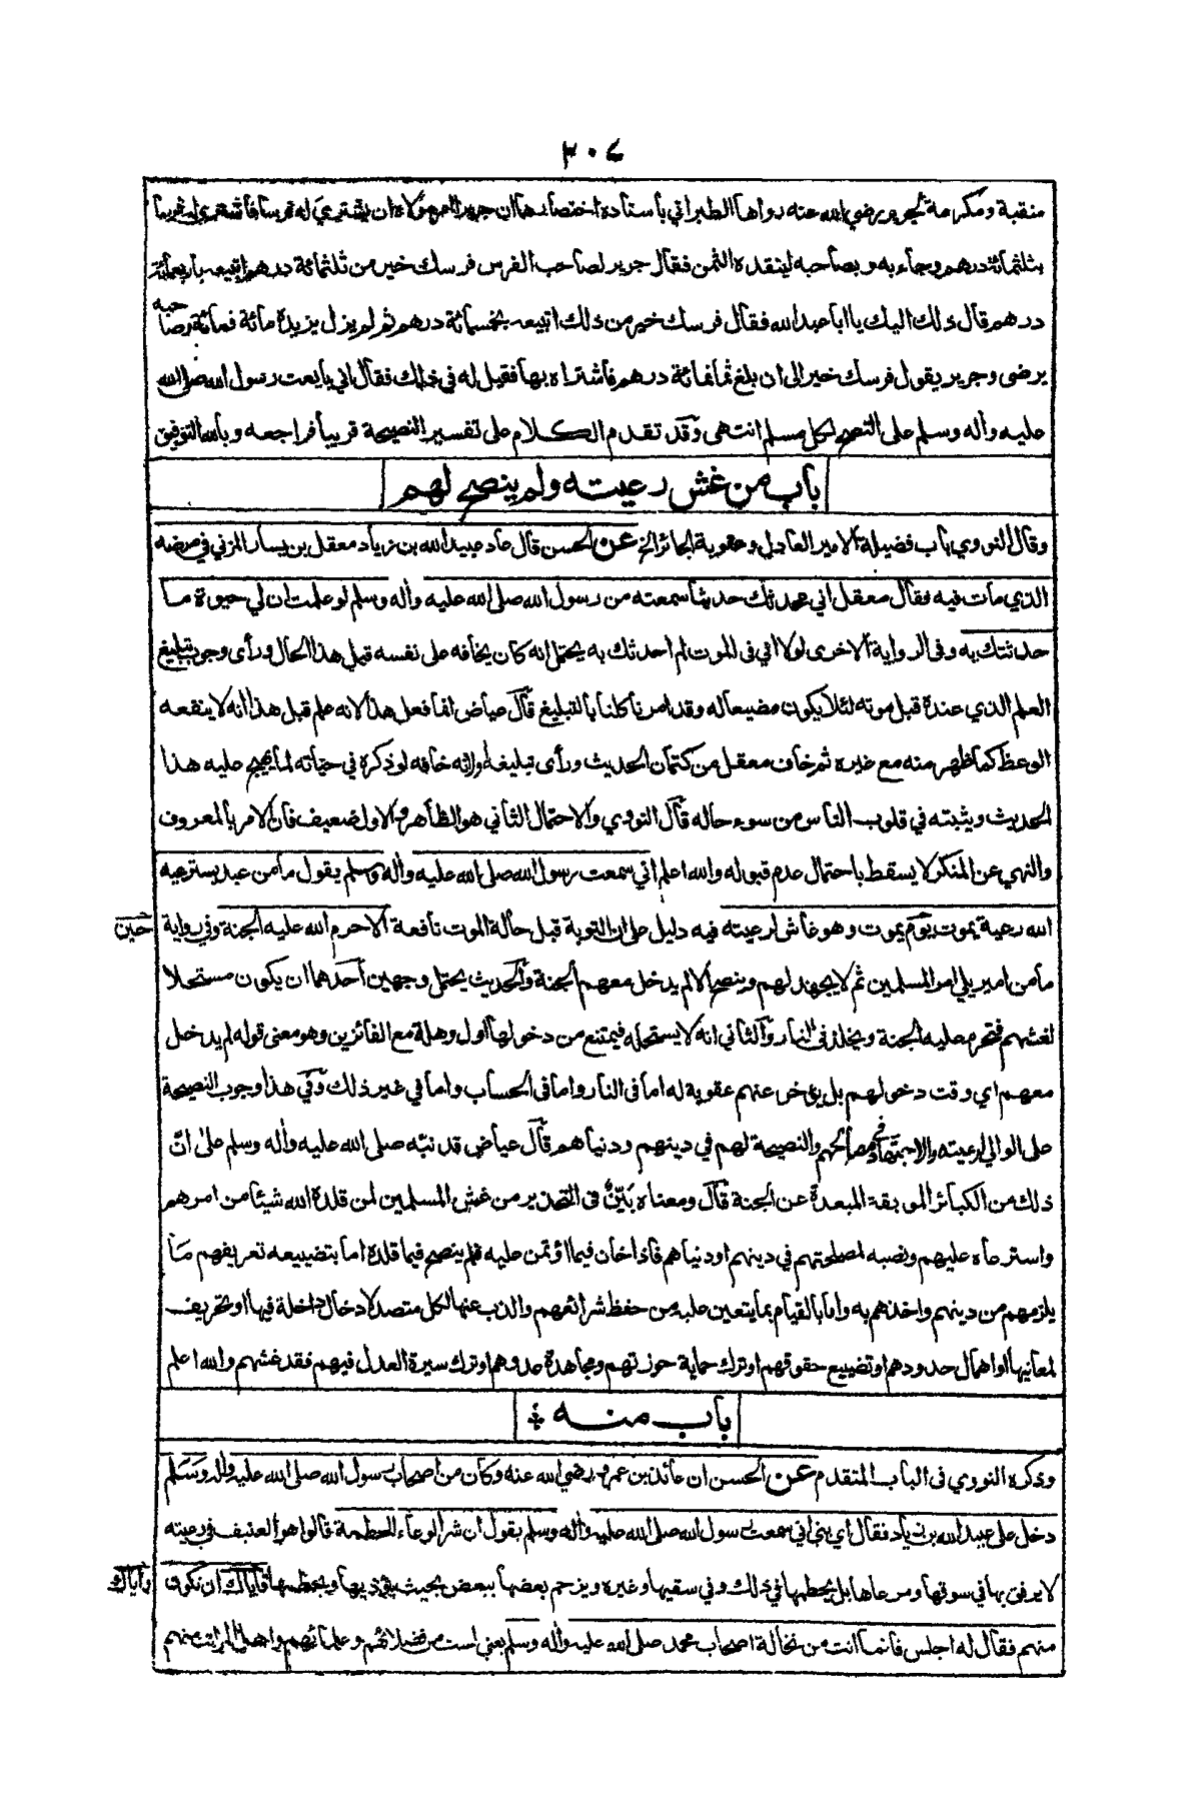 ٣٠٧
منقبة ومكرمة لجرير رضي الله عنه رواها الطبراني بأسناده اختصارها ان جريرا امر مولاه ان يشتري له فرسا فاشترى له فرسا
بثلثمائة درهم وجاء به وبصاحبه لينقده الثمن فقال جرير لصاحب الفرس فرسك خير من ثلثمائة درهم اتبيعه باربعمائة
درهم قال ذلك اليك يا ابا عبد الله فقال فرسك خير من ذلك اتبيعه بخمسمائة درهم ثم لم يزل يزيده مائة فمائة وصاحبه
يرضى وجرير يقول فرسك خير الى ان بلغ ثمانمائة درهم فاشتراه بها فقيل له في ذلك فقال اني بايعت رسول الله صلى الله
عليه واله وسلم على النصح لكل مسلم انتهى وقد تقدم الكلام على تفسير النصيحة قريبا فراجعه وبالله التوفيق
باب من غش رعيته ولم ينصح لهم
وقال النووي باب فضيلة الامير العادل وعقوبة الجائر الخ عن الحسن قال عاد عبيد الله بن زياد معقل بن يسار المزني في مرضه
الذي مات فيه فقال معقل اني محدثك حديثا سمعته من رسول الله صلى الله عليه واله وسلم لو علمت ان لي حيوة ما
حدثتك به وفى الرواية الاخرى لولا اني فى الموت لم احدثك به يحتمل انه كان يخافه على نفسه قبل هذا الحال ورأى وجوب تبليغ
العلم الذي عنده قبل موته لئلا يكون مضيعا له وقد امرنا كلنا بالتبليغ قال عياض انما فعل هذا لانه علم قبل هذا انه لا ينفعه
الوعظ كما ظهر منه مع غيره ثم خاف معقل من كتمان الحديث ورأى تبليغه او انه خافه لو ذكره في حياته لما يهيج عليه هذا
الحديث ويثبته في قلوب الناس من سوء حاله قال النووي والاحتمال الثاني هو الظاهر والاول ضعيف فان الامر بالمعروف
والنهي عن المنكر لا يسقط باحتمال عدم قبوله والله اعلم اني سمعت رسول الله صلى الله عليه واله وسلم يقول ما من عبد يسترعيه
الله رعية يموت يوم يموت وهو غاش لرعيته فيه دليل على ان التوبة قبل حالة الموت نافعة الا حرم الله عليه الجنة وفي رواية
حين
ما من امير يلي امر المسلمين ثم لا يجهد لهم وينصح الا لم يدخل معهم الجنة والحديث يحتمل وجهين احدهما ان يكون مستحلا
لغشهم فتحرم عليه الجنة ويخلد في النار والثاني انه لا يستحله فيمتنع من دخولها اول وهلة مع الفائزين وهو معنى قوله لم يدخل
معهم اي وقت دخولهم بل يؤخر عنهم عقوبة له اما فى النار واما فى الحساب واما في غير ذلك وفي هذا وجوب النصيحة
على الوالي لرعيته والاجتهاد في مصالحهم والنصيحة لهم في دينهم ودنياهم قال عياض قد نبّه صلى الله عليه واله وسلم على انّ
ذلك من الكبائر الموبقة المبعدة عن الجنة قال ومعناه بَيّنٌ فى التحذير من غش المسلمين لمن قلده الله شيئا من امرهم
واسترعاه عليهم ونصبه لمصلحتهم في دينهم او دنياهم فاذا خان فيما اؤتمن عليه فلم ينصح فيما قلده اما بتضييعه تعريفهم ما
يلزمهم من دينهم واخذهم به واما بالقيام بما يتعين عليه من حفظ شرائعهم والذب عنها لكل متصد لادخال داخلة فيها او تحريف
لمعانيها او اهمال حدودهم او تضييع حقوقهم او ترك حماية حوزتهم ومجاهدة عدوهم او ترك سيرة العدل فيهم فقد غشهم والله اعلم
باب منه
وذكره النووي فى الباب المتقدم عن الحسن ان عائذ بن عمرو رضي الله عنه وكان من اصحاب رسول الله صلى الله عليه واله وسلم
دخل على عبيد الله بن زياد فقال اي بني اني سمعت رسول الله صلى الله عليه واله وسلم يقول ان شر الرعاء الحطمة قالوا هو العنيف في رعيته
لا يرفق بها في سوقها ومرعاها بل يحطمها في ذلك وفي سقيها وغيره ويزحم بعضها ببعض بحيث يؤذيها ويحطمها فاياك ان تكون
واياك
منهم فقال له اجلس فانما انت من نخالة اصحاب محمد صلى الله عليه واله وسلم يعني لست من فضلائهم وعلمائهم واهل المراتب منهم